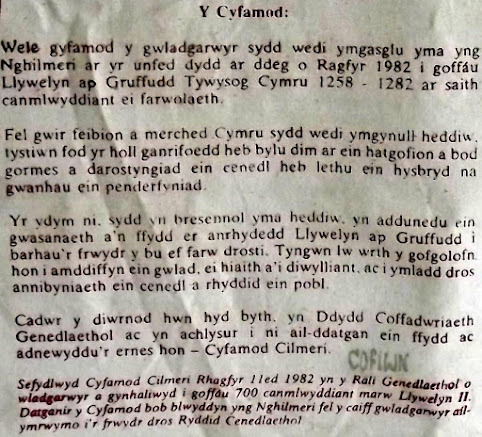 Y Cyfamod:
Wele gyfamod y gwladgarwyr sydd wedi ymgasglu yma yng
Nghilmeri ar yr unfed dydd ar ddeg o Ragfyr 1982 i goffáu
Llywelyn ap Gruffudd Tywysog Cymru 1258 - 1282 ar saith
canmlwyddiant ei farwolaeth.
Fel gwir feibion a merched Cymru sydd wedi ymgynull heddiw,
tystiwn fod yr holl ganrifoedd heb bylu dim ar ein hatgofion a bod
gormes a darostyngiad ein cenedl heb lethu ein hysbryd na
gwanhau ein penderfyniad.
Yr ydym ni, sydd yn bresennol yma heddiw, yn addunedu ein
gwasanaeth a'n ffydd er anrhydedd Llywelyn ap Gruffudd i
barhau'r frwydr y bu ef farw drosti. Tyngwn lw wrth y gofgolofn
hon i amddiffyn ein gwlad, ei hiaith a'i diwylliant, ac i ymladd dros
annibyniaeth ein cenedl a rhyddid ein pobl.
Cadwr y diwrnod hwn hyd byth, yn Ddydd Coffadwriaeth
Genedlaethol ac yn achlysur i ni ail-ddatgan ein ffydd ac
adnewyddu'r ernes hon - Cyfamod Cilmeri.
COFIWN
Sefydlwyd Cyfamod Cilmeri Rhagfyr 11ed 1982 yn y Rali Genedlaethol o
wladgarwyr a gynhaliwyd i goffáu 700 canmlwyddiant marw Llywelyn II.
Datganir y Cyfamod bob blwyddyn yng Nghilmeri fel y caiff gwladgarwyr ail-
ymrwymo i'r frwydr dros Ryddid Cenedlaethol